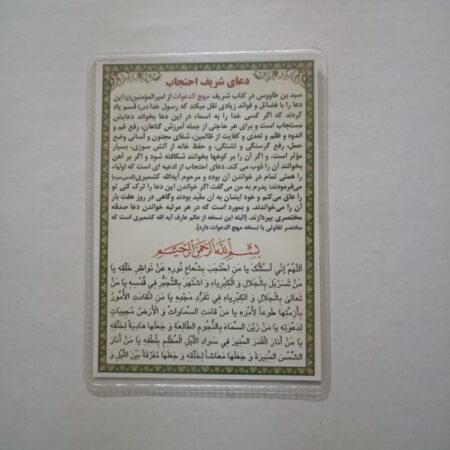 دعای شریف احتجاب
سید بن طاووس در کتاب شریف مهج الدعوات از امیرالمؤمنین(ع) این
دعا را با فضائل و فوائد زیادی نقل میکند که رسول خدا (ص) قسم یاد
کردند که اگر کسی خدا را به اسماء در این دعا بخواند دعایش
مستجاب است و برای هر حاجتی از جمله آمرزش گناهان، رفع غم و
اندوه و ظلم و تعدی و کفایت از ظالمین، شفای مجنون و آسانی وضع
حمل، رفع گرسنگی و تشنگی، و حفظ خانه از آتش سوزی، بسیار
مؤثر است. و اگر آن را بر کوهها بخوانند شکافته شود و اگر بر آهن
بخوانند آن را ذوب می کند. دعای احتجاب از ادعیه ای است که اولیاء
را همتی تمام در خواندن آن بوده و مرحوم آیه‌الله کشمیری(قدس سره)
می‌فرمودند: پدرم به من می‌گفت اگر خواندن این دعا را ترک کنی تو
را عاق می‌کنم و خود ایشان به آن مقید بودند وگاهی در روز هفت بار
آن را می‌خواندند. و بمورد است که در هر مرتبه خواندن دعا صدقه
مختصری بپردازند. (البته این نسخه از عالم عارف آیه الله کشمیری است که
مختصر تفاوتی با نسخه مهج الدعوات دارد).
بِسْمِ اللهِ الرَّحْمنِ الرَّحیمِ
اللهُمَّ إنّي أسئَلُکَ یا مَنِ احْتَجَبَ بِشُعاعِ نُورِهِ عَنْ نَواظِرِ خَلْقِهِ یا
مَنْ تَسَرْبَلَ بِالْجَلالِ وَ الْکِبْرِیاءِ وَ اشْتَهَرَ بِالتَّجَبُّرِ فِي قُدْسِهِ یا مَنْ
تَعالی بِالْجَلالِ وَ الْکِبْرِیاءِ فِي تَفَرُّدِ مَجْدِهِ یا مَنِ انْقادَتِ الْأُمُورُ
بِأَزِمَّتِها طَوعاً لِأَمْرِهِ یا مَنْ قامَتِ السَّماواتُ وَ الْأَرْضُ مُجِیباتٍ
لِدَعْوَتِهِ یا مَنْ زَیَّنَ السَّماءَ بِالنُّجُومِ الطّالِعَةِ وَ جَعَلَها هادِیَةً لِخَلْقِهِ
یا مَنْ أَنارَ الْقَمَرَ الْمُنِیرَ فِي سَوادِ اللَّیْلِ الْمُظْلِمِ بِلُطْفِهِ یا مَنْ أَنارَ
الشَّمْسَ الْمُنِیرَةَ وَ جَعَلَها مَعاشاً لِخَلْقِهِ وَ جَعَلَها مُفَرِّقَةً بَیْنَ اللَّیْلِ وَ